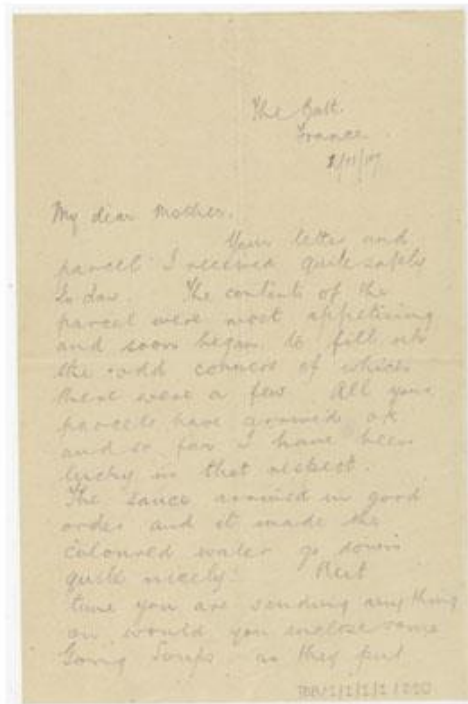 The Batt.
France.
/11/17
My dear Mother.
Your letter and
parcel I received quite safely
to day. The contents of the
parcel were most appetising
and soon began to fill up
the odd corners of which
there were a few. All your
parcels have arrived ok
and so far I have been
lucky in that respect.
The sauce arrived in good
order and it made the
coloured water go down
quite nicely! Next
time you are sending anything
on would you enclose some
Soups as they put